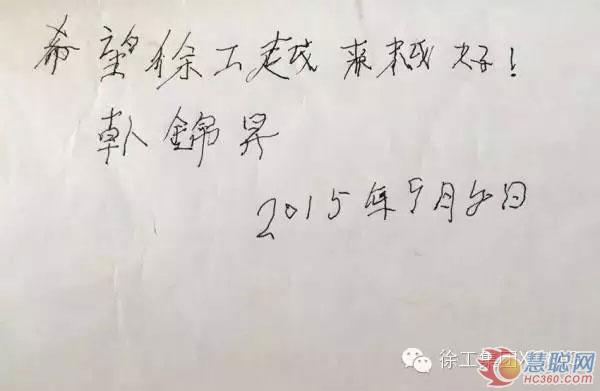 希望徐工越来越好!
錦昇
2015年9月 日
徐工集团
慧聪网
HC360.com